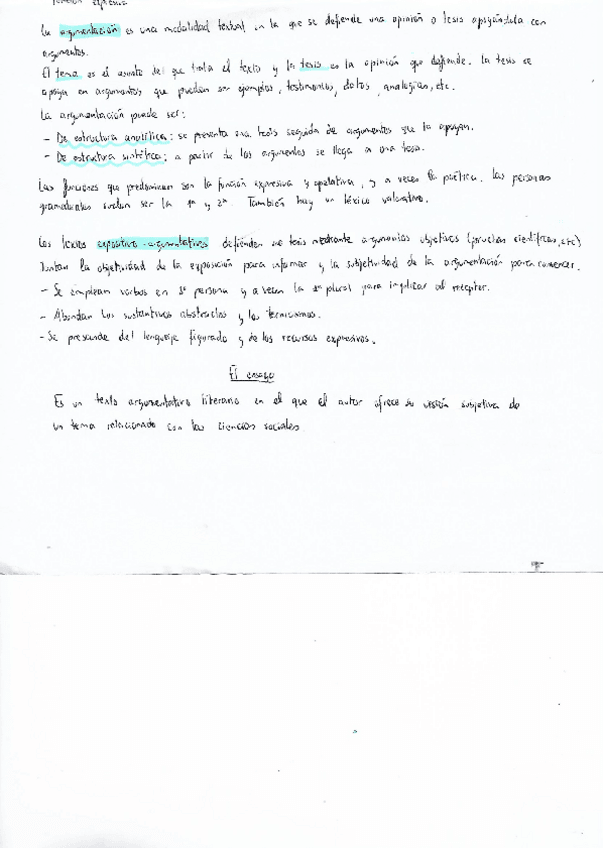 función expresiva
La argumentación es una modalidad textual en la que se defiende una opinión o tesis apoyándola con
argumentos.
El tema es el asunto del que trata el texto y la tesis es la opinión que defiende. La tesis se
apoya en argumentos que pueden ser ejemplos, testimonios, datos, analogías, etc.
La argumentación puede ser:
- De estructura analítica: se presenta una tesis seguida de argumentos que la apoyan.
- De estructura sintética: a partir de los argumentos se llega a una tesis.
Las funciones que predominan son la función expresiva y apelativa, y a veces la poética. Las personas
gramaticales suelen ser la 1ª y 2ª. También hay un léxico valorativo.
Los textos expositivo-argumentativos defienden una tesis mediante argumentos objetivos (pruebas científicas, etc)
Juntan la objetividad de la exposición para informar y la subjetividad de la argumentación para convencer.
- Se emplean verbos en 3ª persona y a veces la 1ª plural para implicar al receptor.
- Abundan los sustantivos abstractos y los tecnicismos.
- Se prescinde del lenguaje figurado y de los recursos expresivos.
El ensayo
Es un texto argumentativo literario en el que el autor ofrece su versión subjetiva de
un tema relacionado con las ciencias sociales